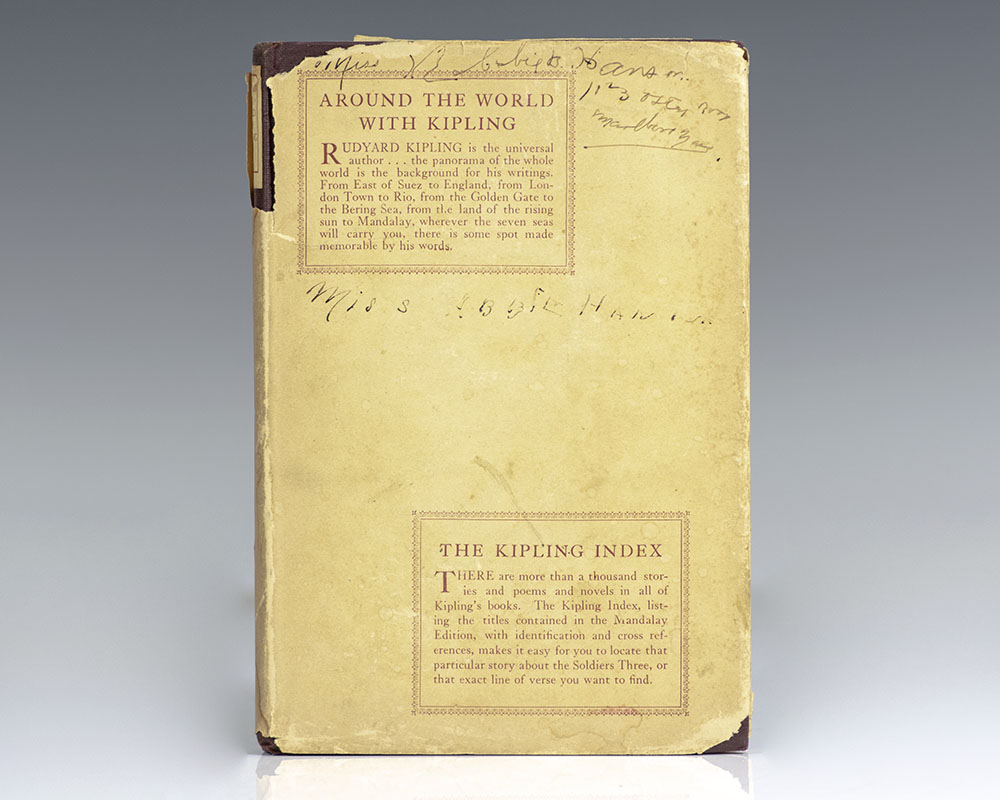 Miss
AROUND THE WORLD
WITH KIPLING
RUDYARD KIPLING is the universal
author . . . the panorama of the whole
world is the background for his writings.
From East of Suez to England, from Lon-
don Town to Rio, from the Golden Gate to
the Bering Sea, from the land of the rising
sun to Mandalay, wherever the seven seas
will carry you, there is some spot made
memorable by his words.
Miss
THE KIPLING INDEX
THERE are more than a thousand stor-
ies and poems and novels in all of
Kipling's books. The Kipling Index, list-
ing the titles contained in the Mandalay
Edition, with identification and cross ref-
erences, makes it easy for you to locate that
particular story about the Soldiers Three, or
that exact line of verse you want to find.